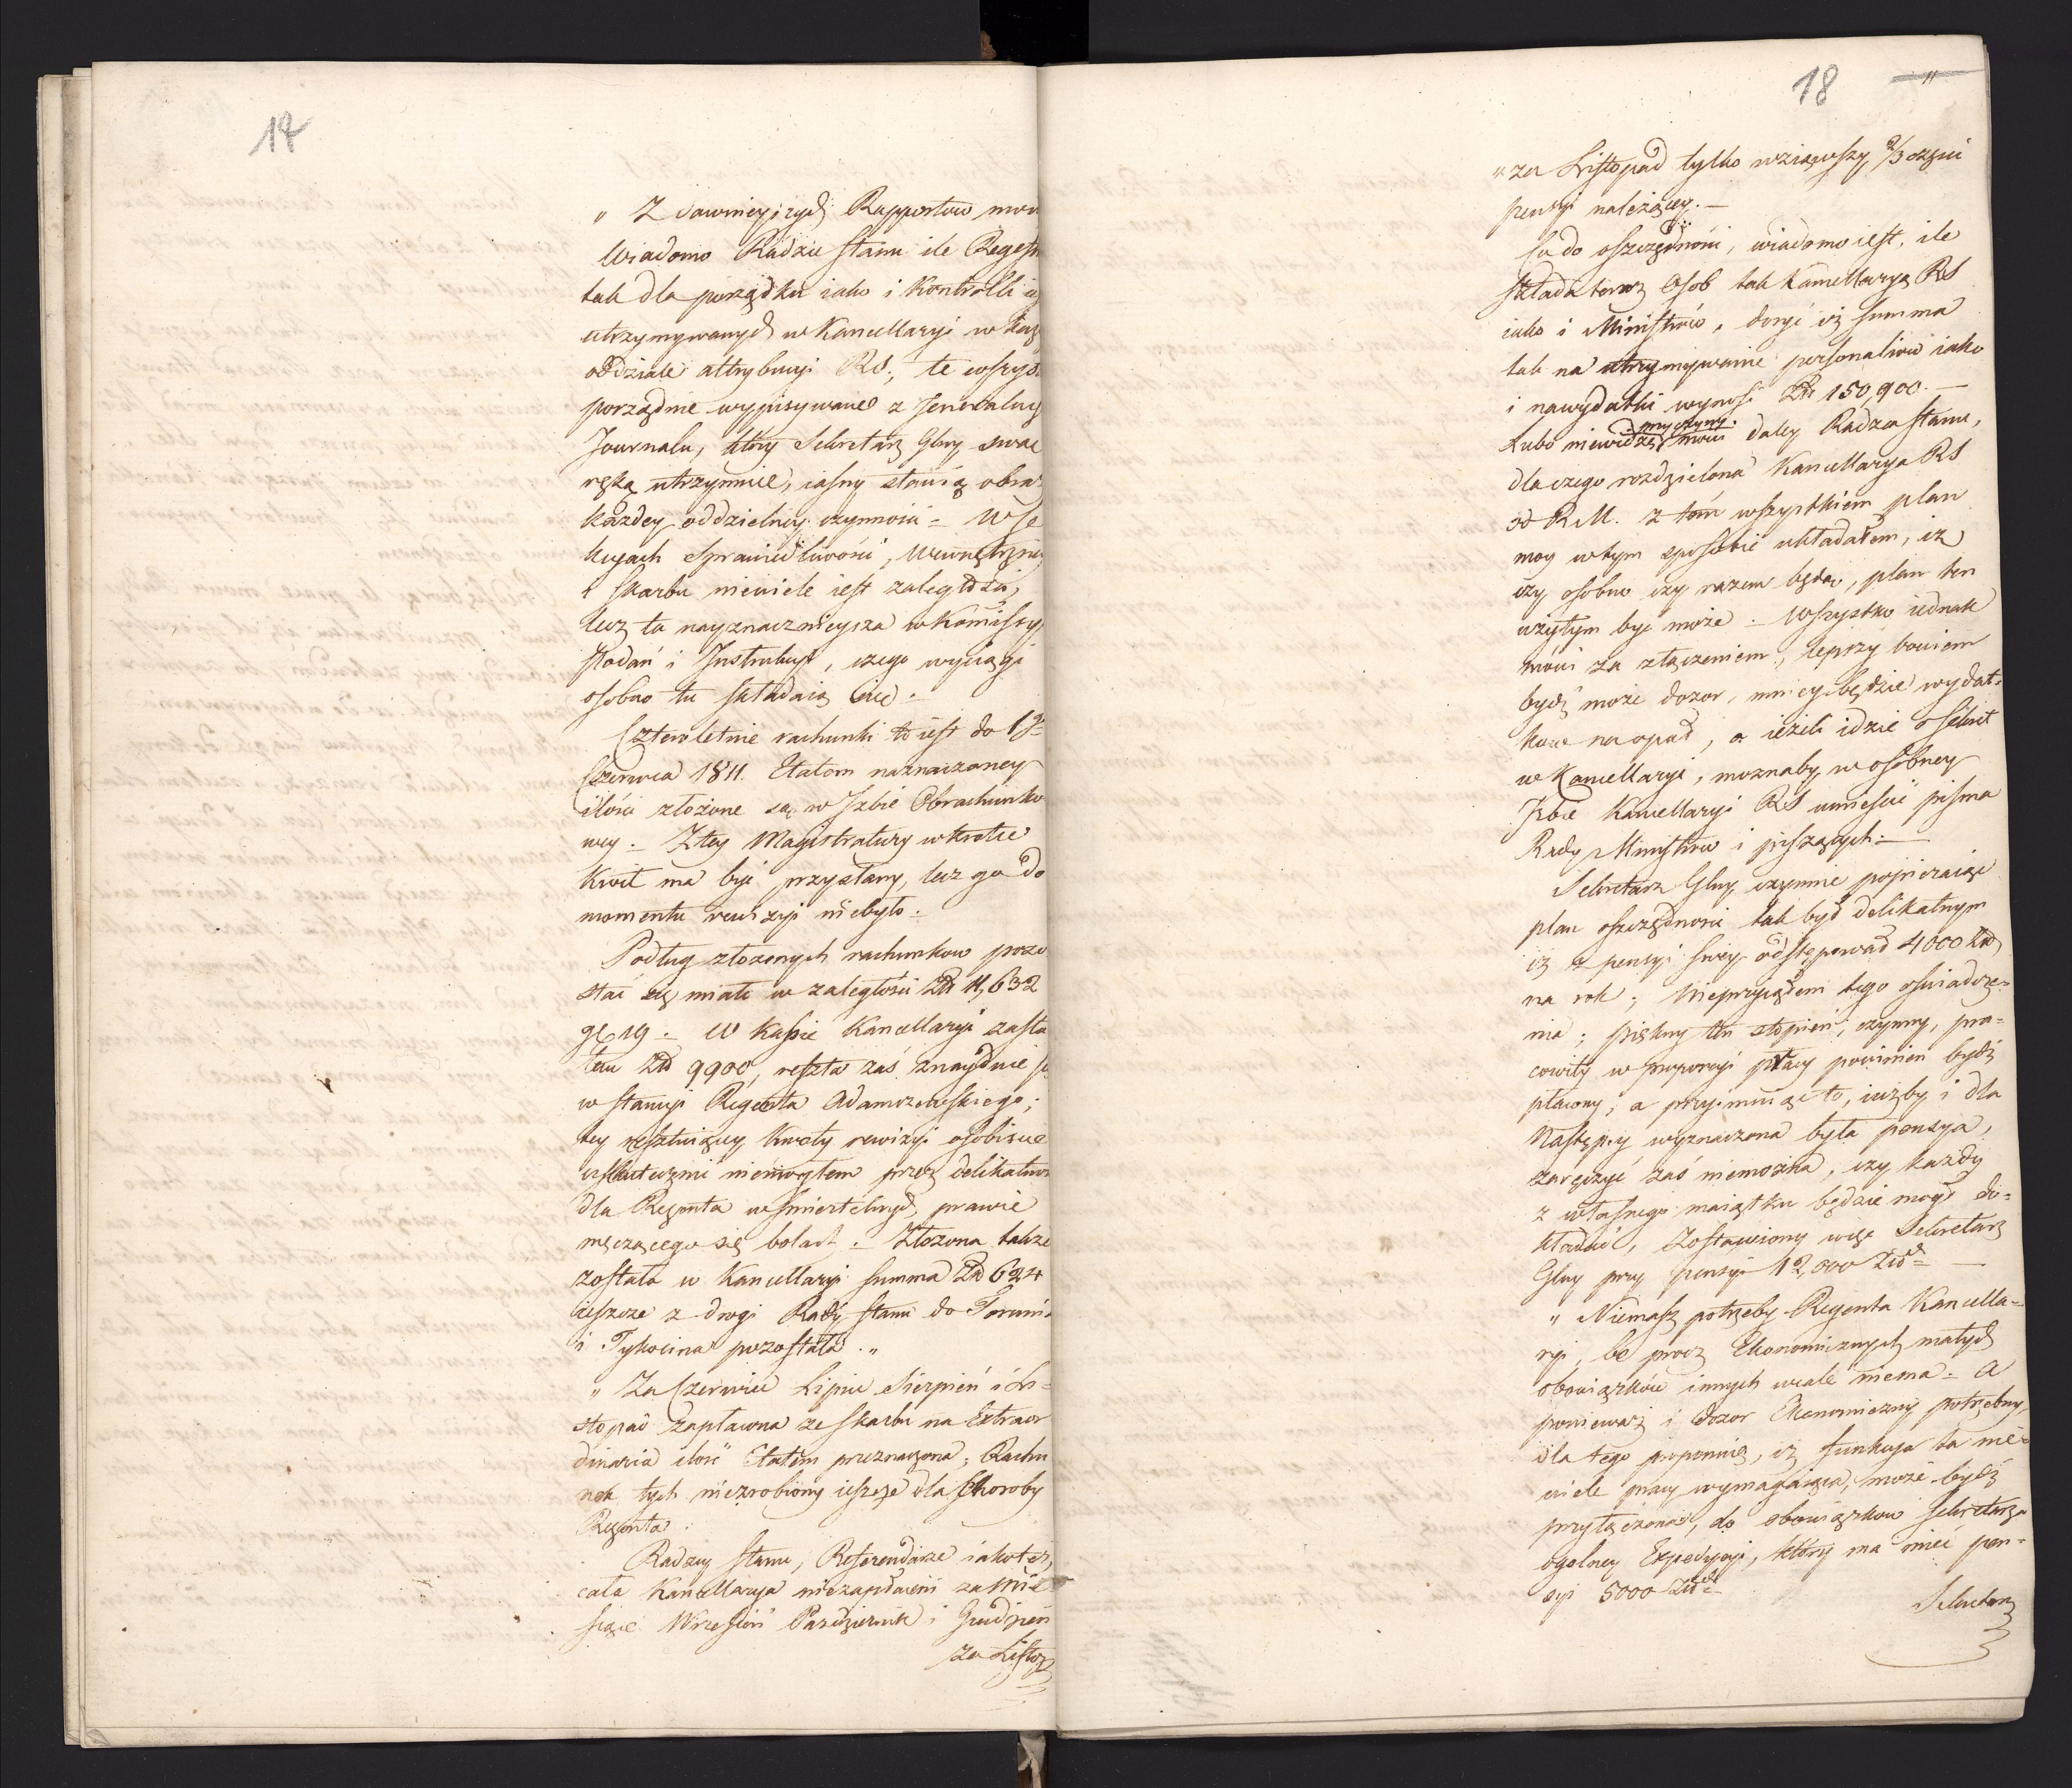 17
„ Z dawnieyszych Rapportow
Wiadomo Radzie Stanu ile
tak dla porządku iako i Kontrolli
utrzymywanych w Kancellaryi w
oddziale attrybucyi RS., te
porządnie wypisywane z
Journalu, ktory Sekretarz Glny
ręką utrzymuie, iasny stawią
każdey oddzielney czynności = W
kcyach Sprawiedliwości,
i Skarbu niewiele iest
lecz ta nayznacznieysza w
Podań i Instrukcyi, czego wyciągi
osobno tu składaią się.
Czteroletnie rachunki to iest do 1go
Czerwca 1811. Etatem naznaczoney
ilości złożone są w Izbie Obrachunko
wey. Z tey Magistratury wkrotce
Kwit ma być przysłany, lecz go do
momentu rewizyi niebyło.
Podług złożonych rachunkow pozo
stać się miało w zaległości Zł 11,632
gr 19. W kassie Kancellaryi zasta
łem Zł 9900, reszta zaś znayduie
w stancyi Regenta Adamczewskiego;
tey resztuiącey kwoty rewizyi osobiscie
uskutecznić niemogłem przez
dla Regenta w śmiertelnych prawie
męczącego się bolach. Złożona także
została w Kancellaryi summa Zł 624
ieszcze z drogi Rady Stanu do
i Tykocina pozostała. „
„ Za Czerwiec Lipiec Sierpień i Li=
stopad zapłacona ze skarbu na Extraor
dinaria ilość Etatem przeznaczona; Rachu
nek tych niezrobiony ieszcze dla choroby
Regenta.
Radzcy Stanu, Referendarze iako też
cała Kancellarya niezapłaceni za mie
siące Wrzesień Pazdziernik i Grudzień
za Listop
18
11
„ za Listopad tylko wziąwszy 2/3 części
pensyi należącey. —
Co do oszczędności, wiadomo iest, ile
składa teraz Osob tak Kancellaryą RS
iako i Ministrow, dosyć iż summa
tak na utrzymywanie personaliow iako
i na wydatki wynosi Zł 150,900. —
przyczyny
Lubo niewidzę, mowi daley Radzca Stanu,
dla czego rozdzielona Kancellarya RS
od RM. z tém wszystkiem plan
moy w tym sposobie układałem, iż
czy osobno czy razem będąc, plan ten
użytym być może. Wszystko iednak
mowi za złączeniem, lepszy bowiem
bydź może dozor, mniey będzie wydat=
kow na opał, a ieżeli idzie o sekret
w Kancellaryi, możnaby w osobney
Izbie Kancellaryi RS umieścić pisma
Rady Ministrow i piszących. —
Sekretarz Glny, czynnie popieraiąc
plan oszczędności tak był delikatnym
iż z pensyi swey odstępował 4000 Zł
na rok; Nieprzyiąłem tego oświadcze=
nia; piękny ten stopień, czynny, pra=
cowity w proporcyi pracy powinien bydź
płacony; a przyimuiąc to, iużby i dla
Następcy wyznaczona była pensya,
zaręczyć zaś niemożna, czy każdy
z własnego maiątku będzie mogł do=
kładać, Zostawiony więc Sekretarz
Glny przy pensyi 12,000 Złch —
„ Niemasz potrzeby Regenta Kancella=
ryi, bo procz Ekonomicznych małych
obowiązkow innych wcale niema. A
ponieważ i dozor Ekonomiczny potrzebny
dla tego proponuię, iż funkcya ta nie=
wiele pracy wymagaiąca, może bydź
przyłączona, do obowiązkow Sekretarza
ogolney Expedycyi, ktory ma mieć pen=
syi 5000 Złch
Sekretarz